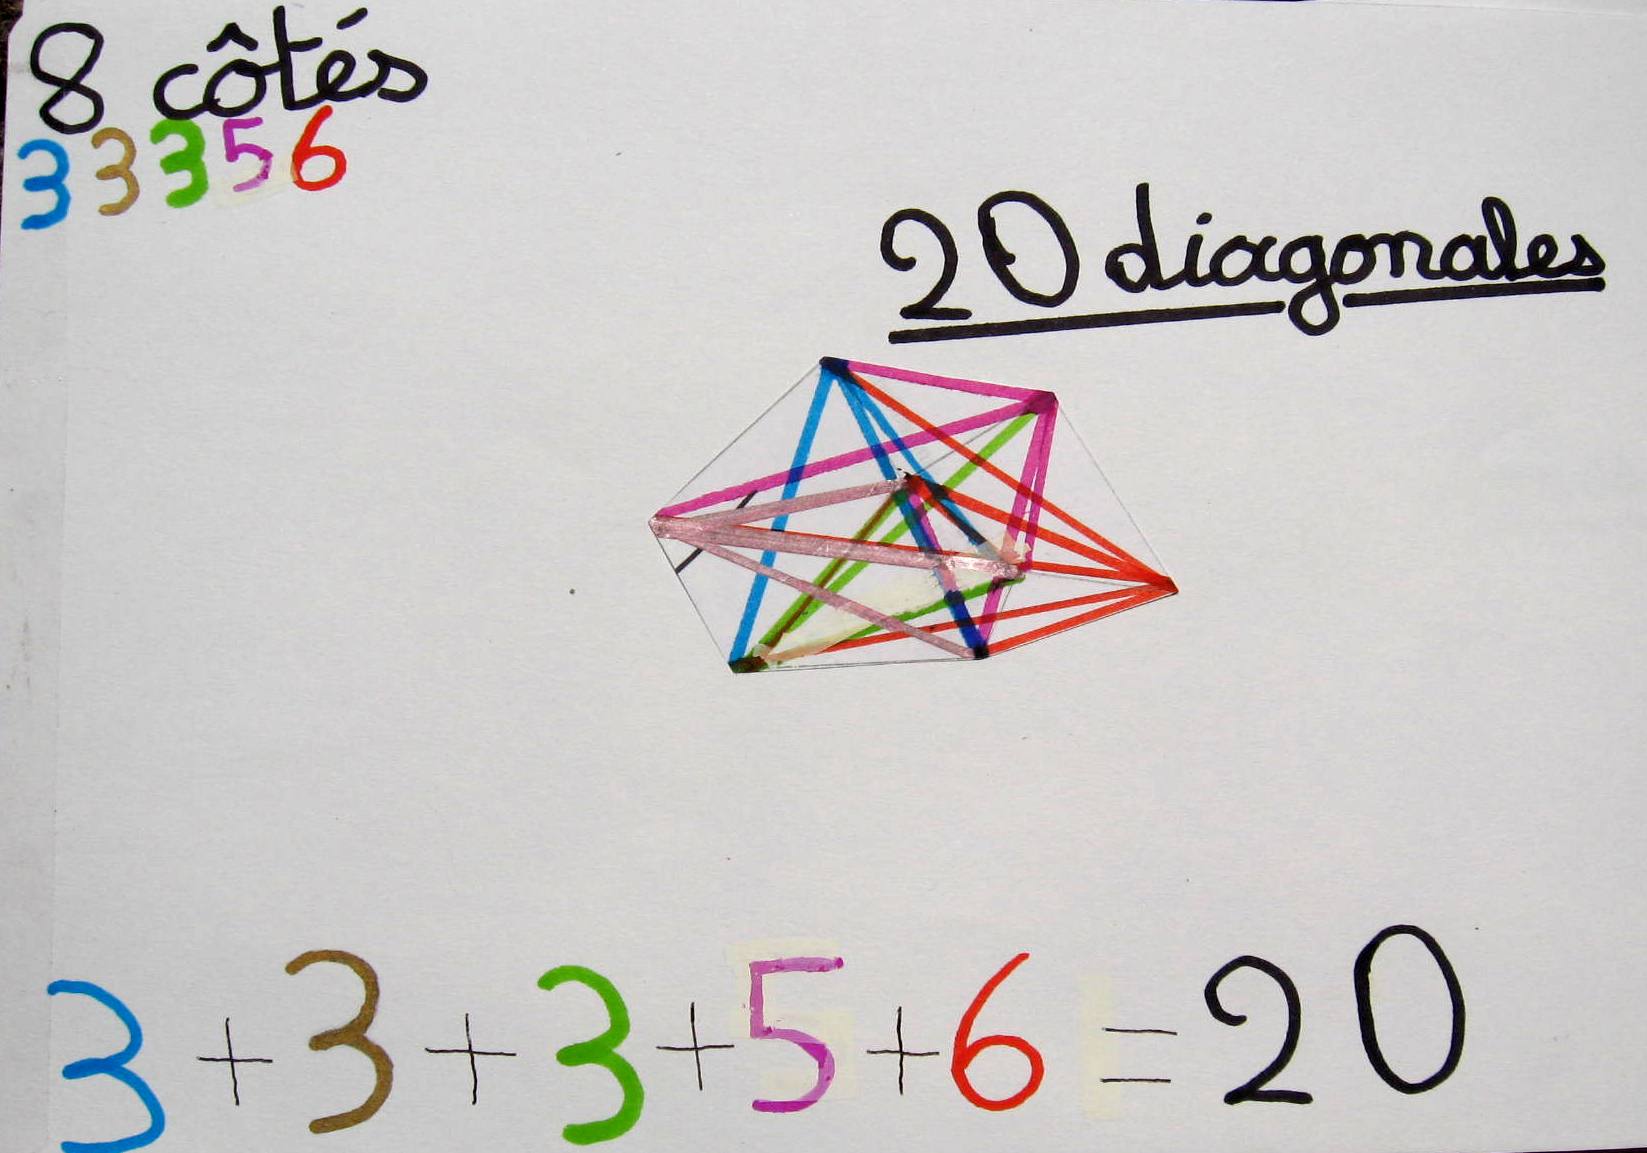 8 côtés
3 3 3 5 6
20 diagonales
3 + 3 + 3 + 5 + 6 = 20